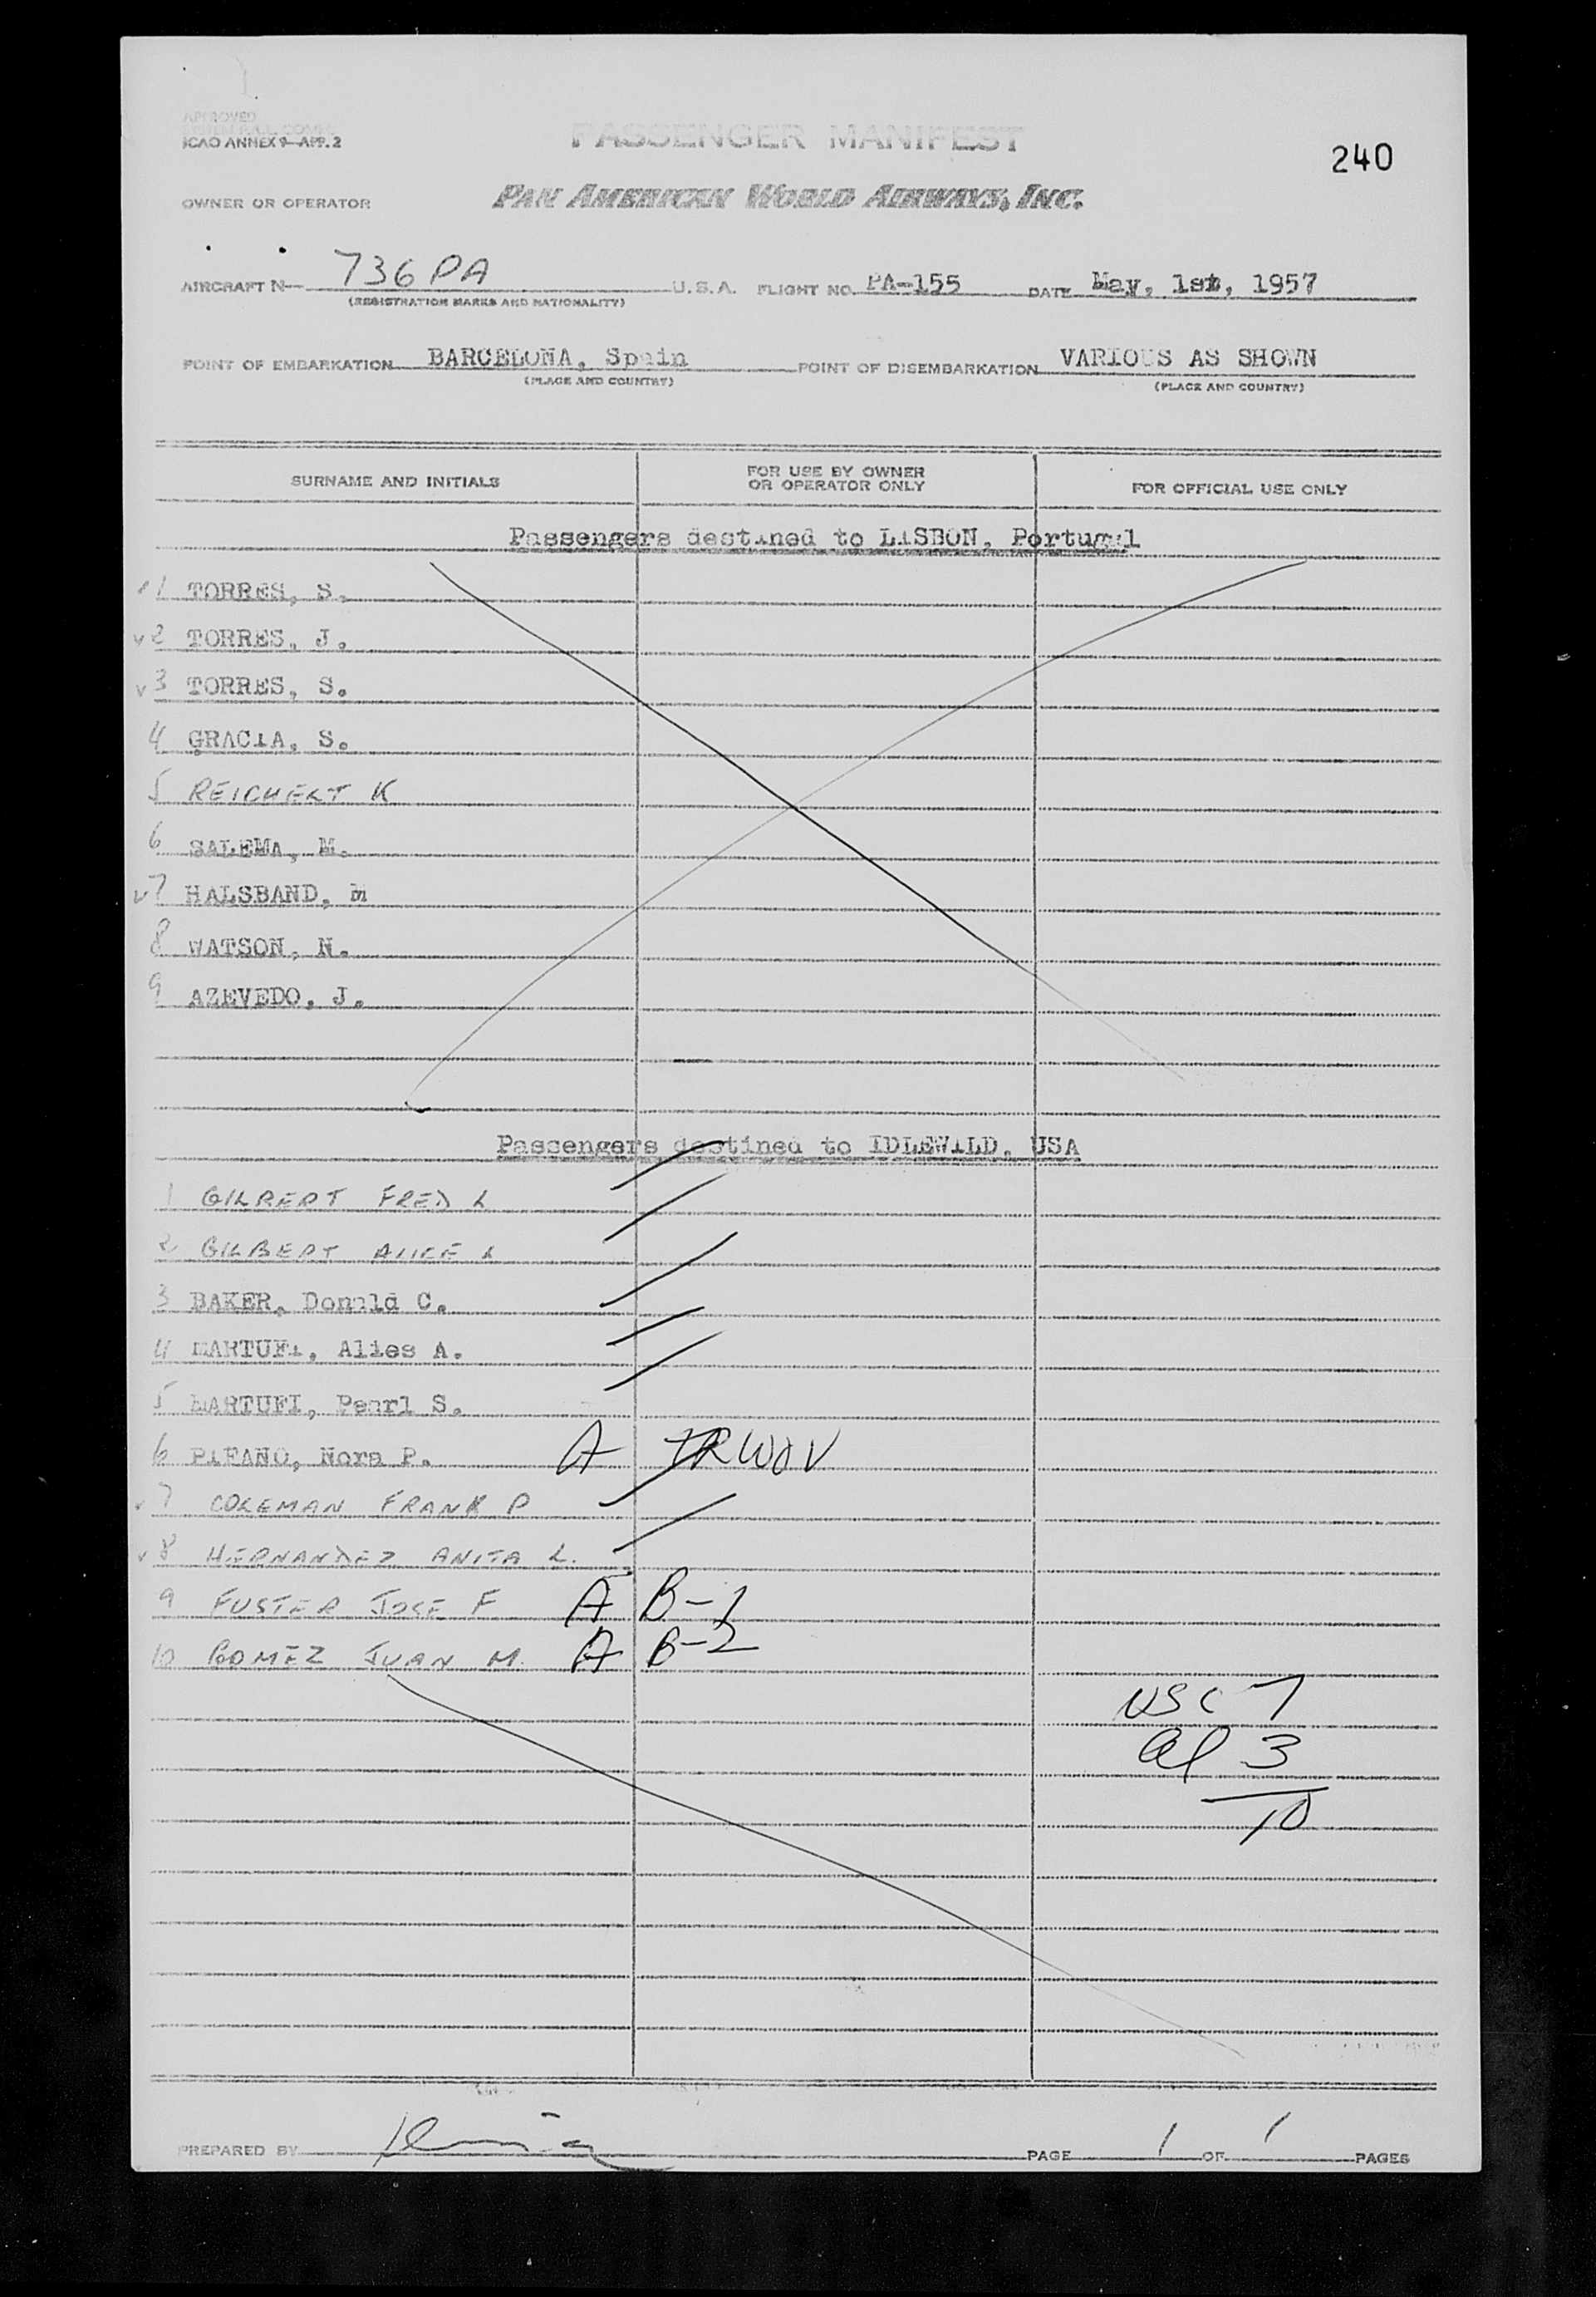 APPROVED
ICAO ANNEX 9—APP. 2
PASSENGER MANIFEST
240
OWNER OR OPERATOR PAN AMERICAN WORLD AIRWAYS, INC.
AIRCRAFT N— 736 PA U.S.A. FLIGHT NO. PA-155 DATE May, 1st, 1957
(REGISTRATION MARKS AND NATIONALITY)
POINT OF EMBARKATION BARCELONA, Spain POINT OF DISEMBARKATION VARIOUS AS SHOWN
(PLACE AND COUNTRY) (PLACE AND COUNTRY)
SURNAME AND INITIALS FOR USE BY OWNER OR OPERATOR ONLY FOR OFFICIAL USE ONLY
Passengers destined to LISBON, Portugal
1 TORRES, S.
2 TORRES, J.
3 TORRES, S.
4 GRACIA, S.
5 REICHERT K
6 SALEMA, M.
7 HALSBAND, m
8 WATSON, N.
9 AZEVEDO, J.
Passengers destined to IDLEWILD, USA
1 GILBERT FRED L
2 GILBERT ALICE L
3 BAKER, Donald C.
4 MARTUFI, Alies A.
5 MARTUFI, Pearl S.
6 PIFANO, Nora P. A TRWOV
7 COLEMAN FRANK P
8 HERNANDEZ ANITA L.
9 FUSTER JOSE F A B-1
10 GOMEZ JUAN M. A B-2
USC 7
al 3
10
PREPARED BY PAGE 1 OF 1 PAGES